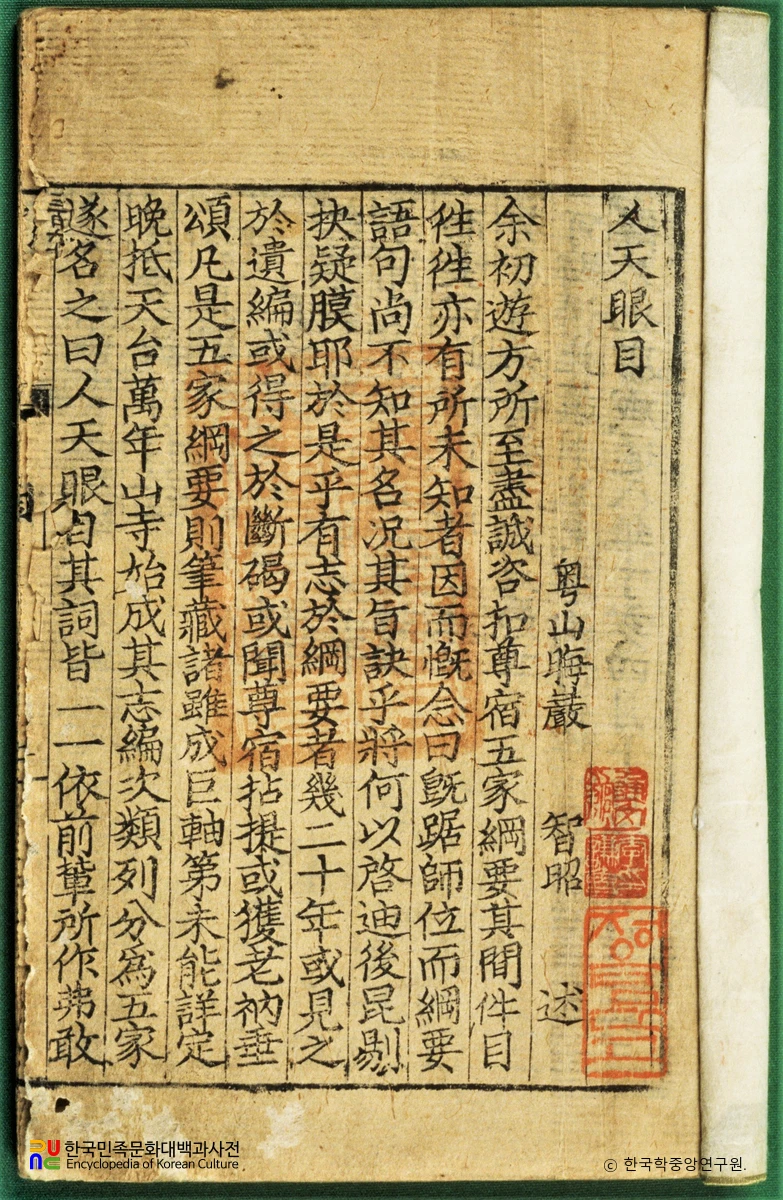 人天眼目
粤山晦巖 智昭 述
余初遊方所至盡誠咨扣尊宿五家綱要其間件目
徃徃亦有所未知者因而慨念曰旣踞師位而綱要
語句尚不知其名况其旨訣乎將何以啓迪後昆剔
抉疑膜耶於是乎有志於綱要者幾二十年或見之
於遺編或得之於斷碣或聞尊宿拈提或獲老衲垂
頌凡是五家綱要則筆藏諸雖成巨軸第未能詳定
晚抵天台萬年山寺始成其志編次類列分爲五家
遂名之曰人天眼目其詞皆一一依前輩所作弗敢
한국민족문화대백과사전
Encyclopedia of Korean Culture
© 한국학중앙연구원.